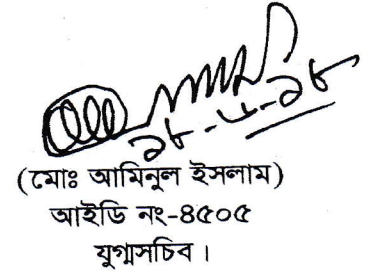 ২৮-৬-২৮
(মোঃ আমিনুল ইসলাম)
আইডি নং-৪৫০৫
যুগ্মসচিব।